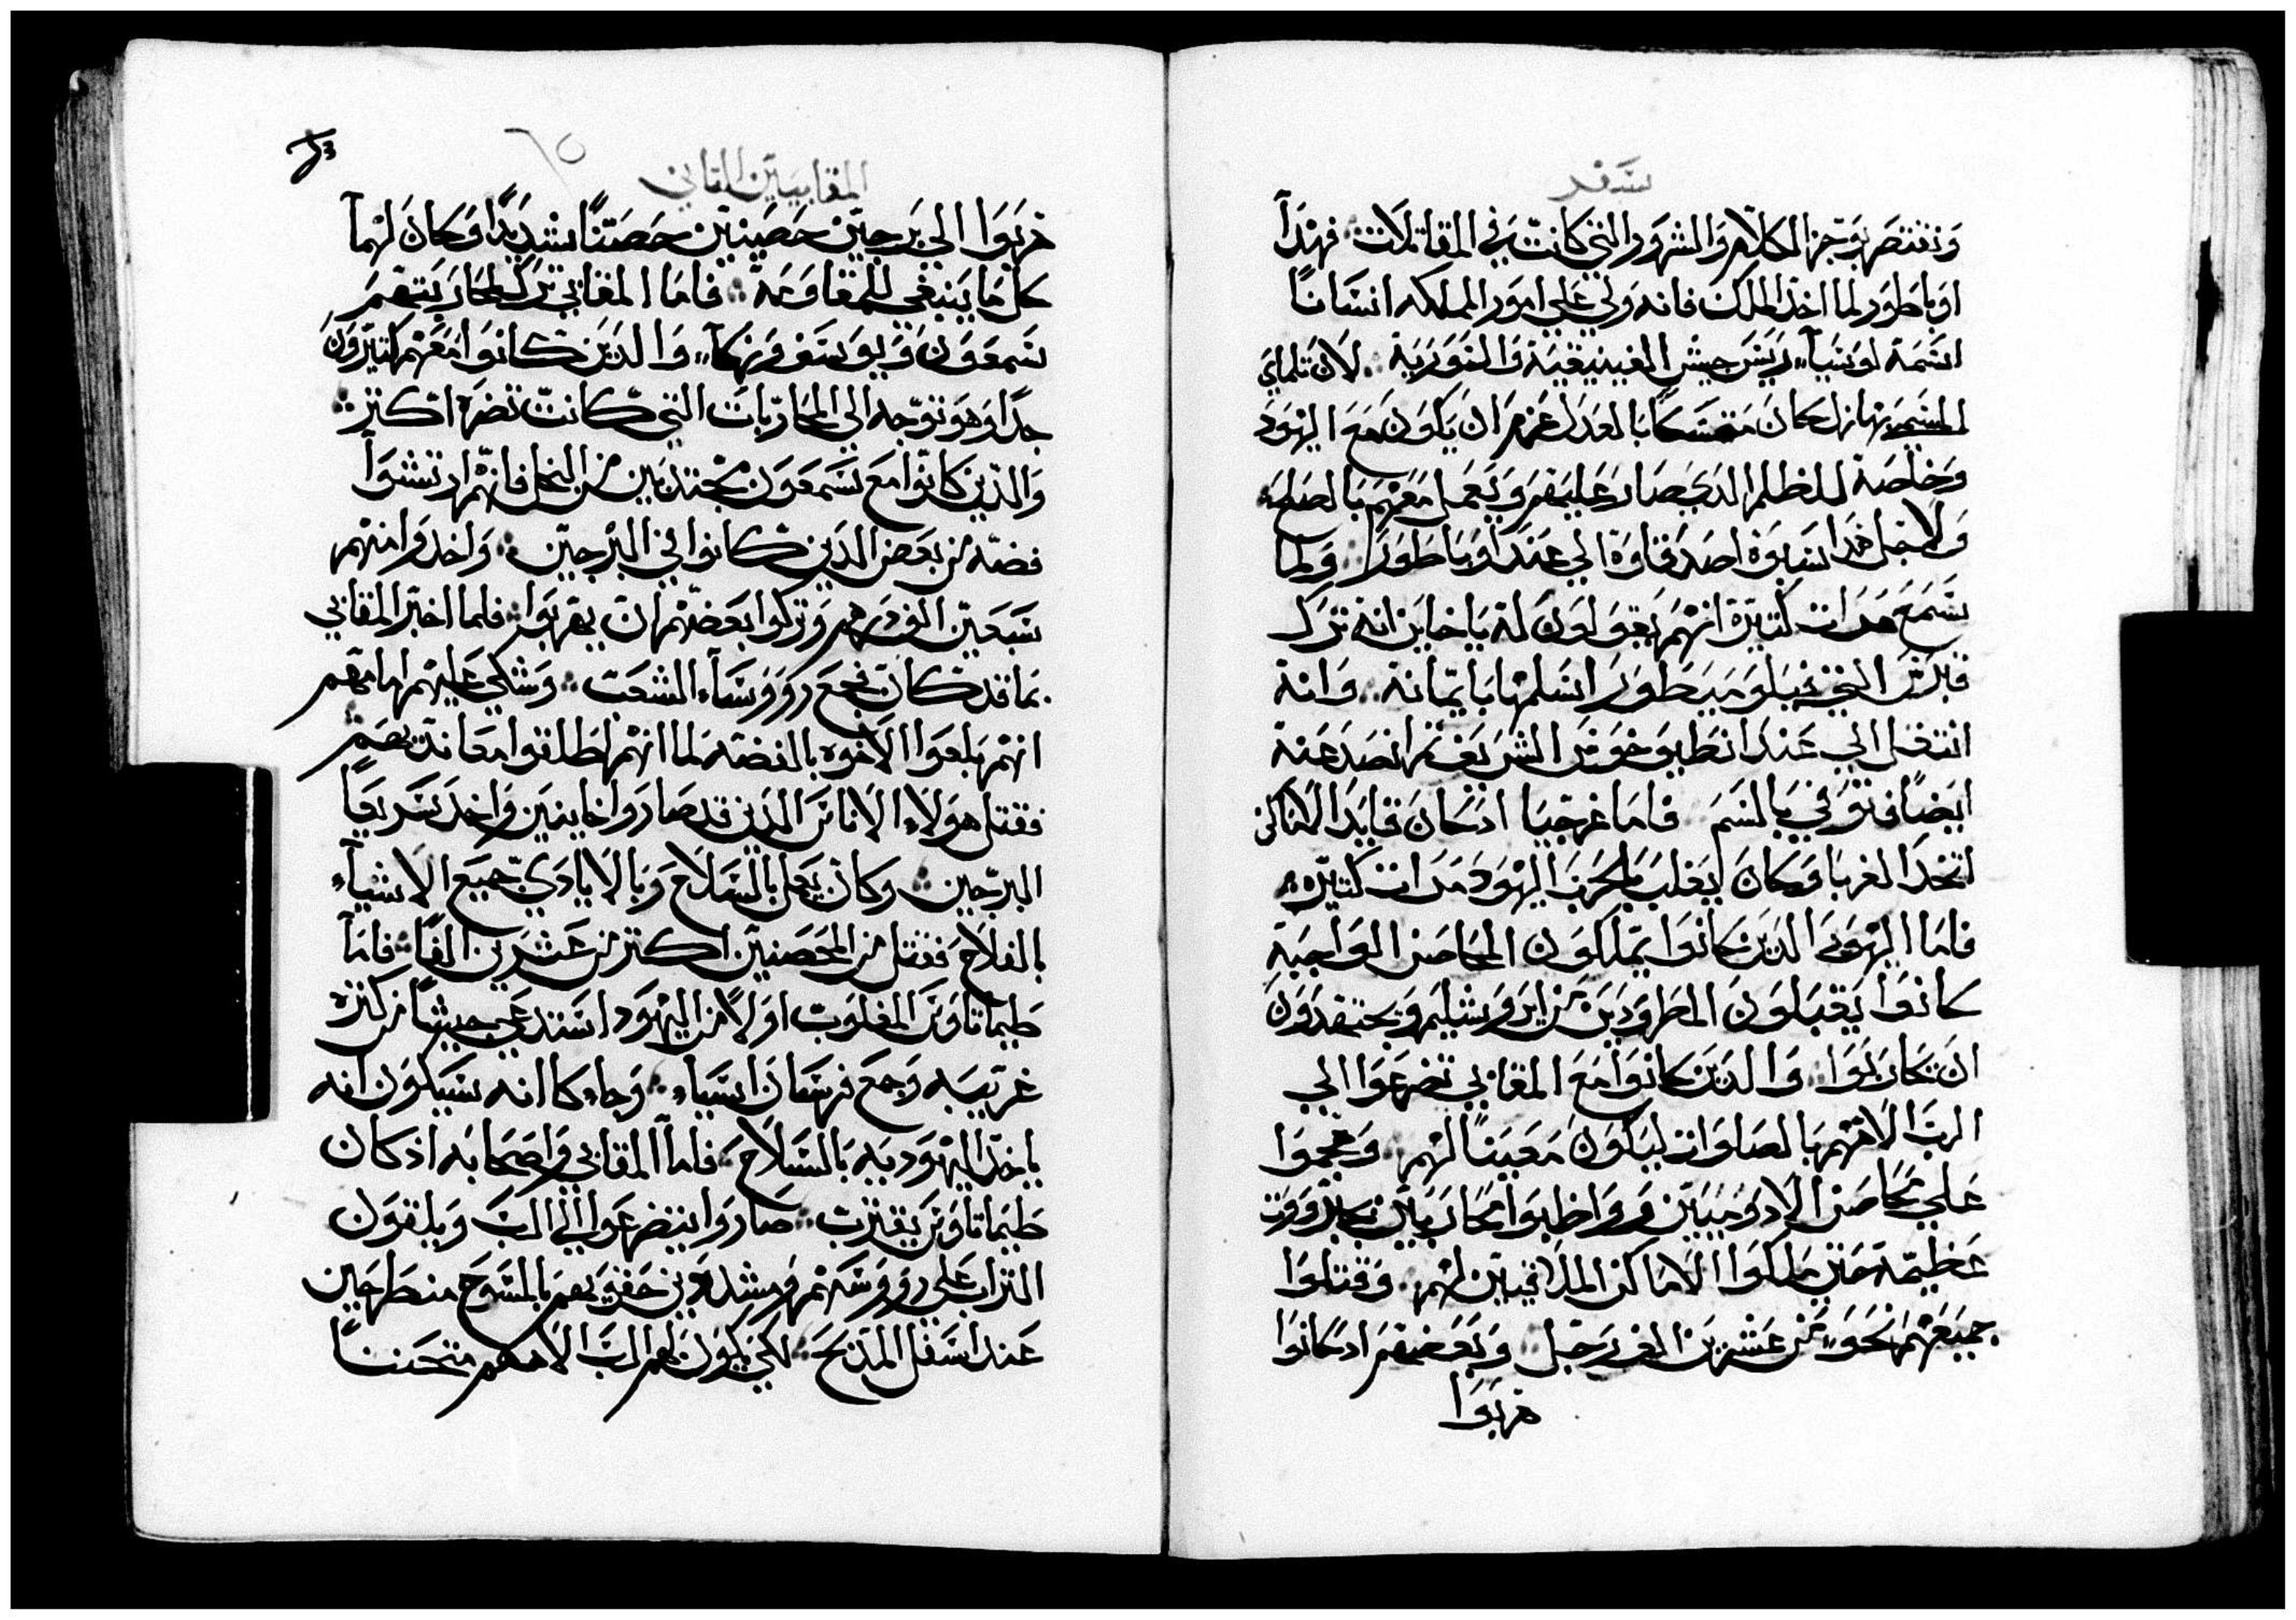 سفر
ونقتصر بوجز الكلام والشرور التي كانت في المقاتلات فهذا
اوباطور لما اخذ الملك فانه ولي علي امور المملكه انسانا
اسمه لوسيا ريس جيش الفينيقية والسورية لان تلماي
المسمي بهازل كان متمسكا بالعدل عزم ان يكون مع اليهود
وخاصة للظلم الذي صار عليهم ويعمل معهم بالصلح
ولاجل هذا اسبوه اصدقاوه الي عند اوباطور ولما
سمع مرات كتيرة انهم يقولون له ياخاين انه ترك
قبرس التي فيلوميطور اسلمها بايمانه وانه
انتقل الي عند انطيوخوس الشريف تم انصد عنه
ايضا فتوفي بالسم فاما غرجيا اد كان قايد الاماكن
اتخد الغربا وكان يغلب بالحرب اليهود مرات كتيره
فاما اليهود الدين كانوا يملكون المحاصن الواجبة
كانوا يقبلون المطرودين من ايروشليم ويجتهدون
ان يحاربوا والدين كانوا مع المقابي تضرعوا الي
الرب الاههم بالصلوات ليكون معينا لهم وهجموا
علي محاصن الادوميين وواظبوا محاربين بكل قوة
عظيمة حتي ملكوا الاماكن الملاقيين لهم وقتلوا
جميعهم نحو من عشرين الف رجل وبعضهم اد كانوا
هربوا
المقابيين التاني
٦٥
هربوا الي برجين حصينين حصنا شديدا وكان لهما
كل ما ينبغي للمقاومة فاما المقابي ترك لمحاربتهم
سمعون ويوسف وزكا والدين كانوا معهم كتيرون
جدا وهو توجه الي المحاربات التي كانت تضره اكتر
والدين كانوا مع سمعون مجتدبين من البخل فانهم ارتشوا
فضه من بعض الدين كانوا في البرجين واخدوا منهم
سبعين الف درهم وتركوا بعضهم ان يهربوا فلما اختبر المقابي
بما قد كان فجمع رووسا الشعب وشكي عليهم اما مهم
انهم باعوا الاخوه بالفضه لما انهم اطلقوا معاندتهم
فقتل هولاء الاناس الدين قد صاروا خاينين واخد سريعا
البرجين وكان يعمل بالسلاح وبالايادي جميع الاشياء
بالفلاح فقتل من المحصنين اكتر من عشرين الفا فاما
طيماتاوس المغلوب اولا من اليهود استدعي جيشا من كترة
غريبيه وجمع فرسان اسياء وجاء كا انه سيكون انه
ياخد اليهوديه بالسلاح فاما المقابي واصحابه اد كان
طيماتاوس يقترب صاروا يتضرعوا الي الرب ويلقون
التراب علي رووسهم ومشدودين حقويهم بالمسوح منطرحين
عند اسفل المدبح لكي يكون لهم الرب الاههم متحننا